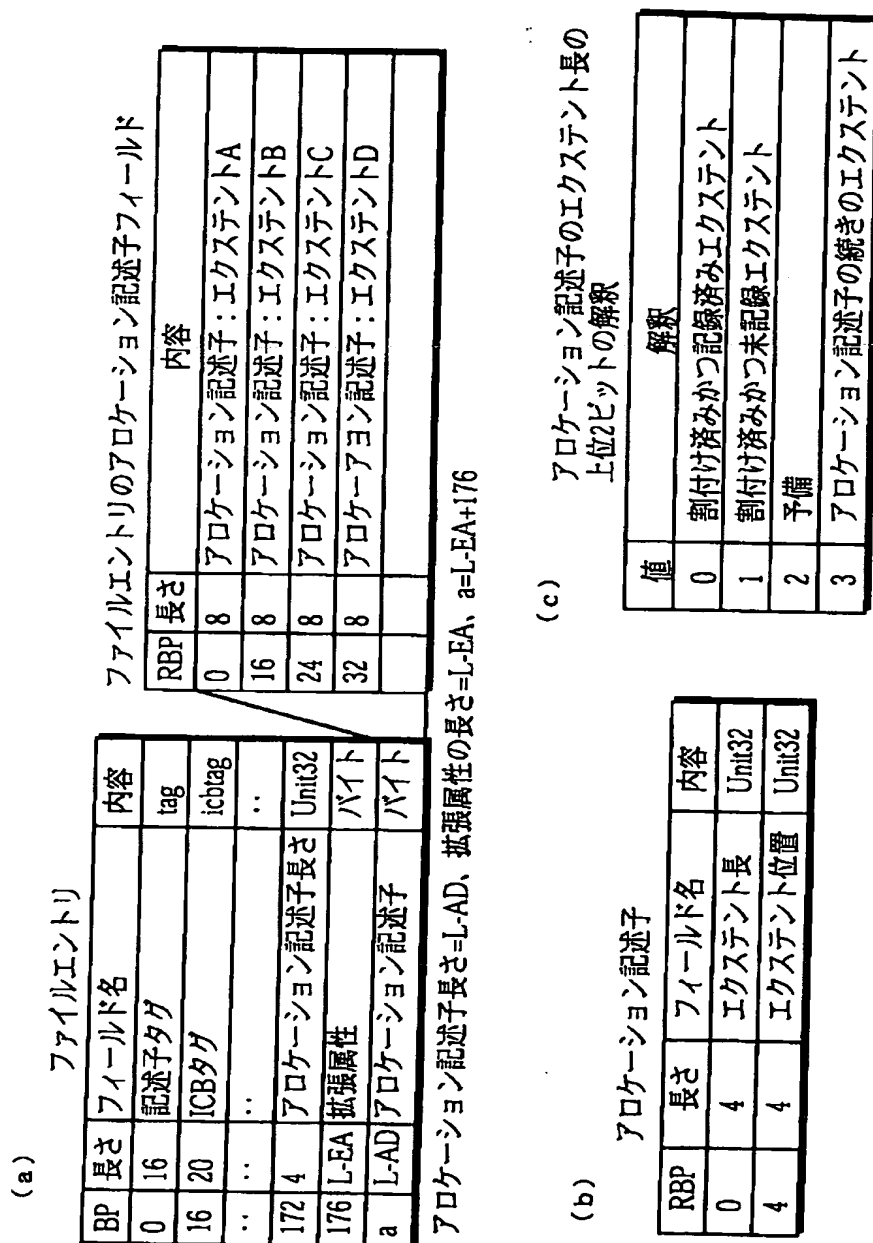 (a)
ファイルエントリ
BP 長さ フィールド名 内容
0 16 記述子タグ tag
16 20 ICBタグ icbtag
‥ ‥ ‥ ‥
172 4 アロケーション記述子長さ Unit32
176 L-EA 拡張属性 バイト
a L-AD アロケーション記述子 バイト
ファイルエントリのアロケーション記述子フィールド
RBP 長さ 内容
0 8 アロケーション記述子：エクステントA
16 8 アロケーション記述子：エクステントB
24 8 アロケーション記述子：エクステントC
32 8 アロケーアヨン記述子：エクステントD
アロケーション記述子長さ=L-AD、拡張属性の長さ=L-EA、a=L-EA+176
(b)
アロケーション記述子
RBP 長さ フィールド名 内容
0 4 エクステント長 Unit32
4 4 エクステント位置 Unit32
(c)
アロケーション記述子のエクステント長の
上位2ビットの解釈
値 解釈
0 割付け済みかつ記録済みエクステント
1 割付け済みかつ未記録エクステント
2 予備
3 アロケーション記述子の続きのエクステント